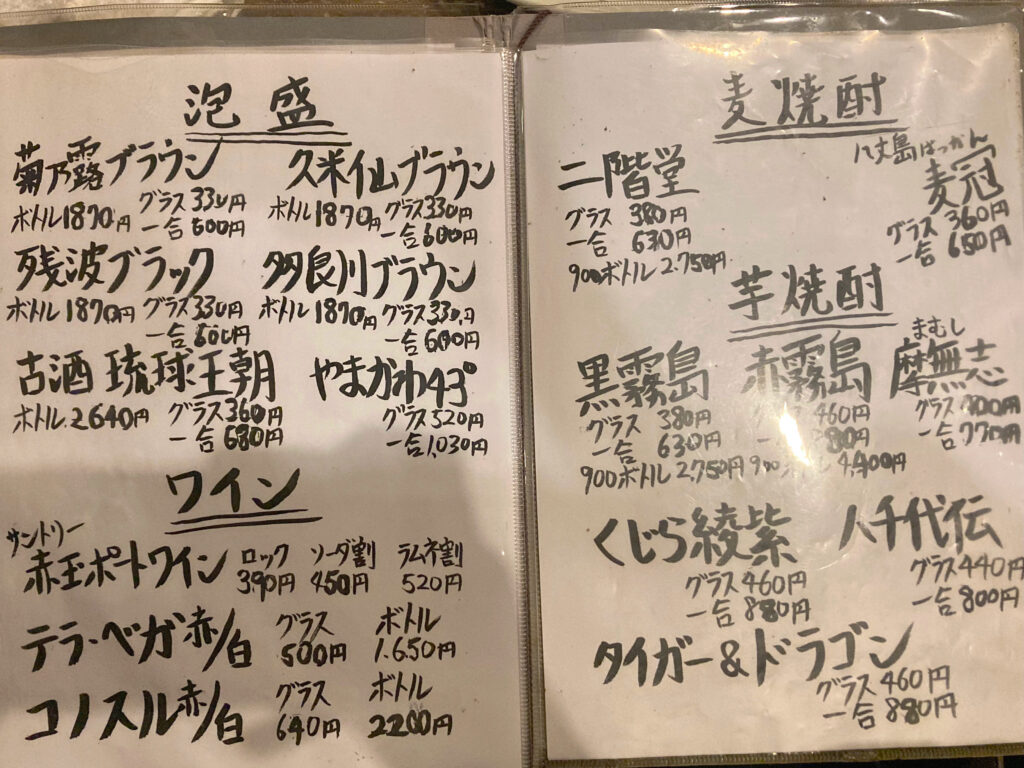 泡盛
菊乃露ブラウン
ボトル1870円 グラス330円
一合600円
久米仙ブラウン
ボトル1870円 グラス330円
一合600円
残波ブラック
ボトル1870円 グラス330円
一合600円
多良川ブラウン
ボトル1870円 グラス330円
一合600円
古酒 琉球王朝
ボトル2640円 グラス360円
一合680円
やまかわ43°
グラス520円
一合1,030円
ワイン
サントリー
赤玉ポートワイン ロック ソーダ割 ラムネ割
390円 450円 520円
テラ・ベガ赤/白 グラス ボトル
500円 1.650円
コノスル赤/白 グラス ボトル
640円 2200円
麦焼酎
二階堂
グラス 380円
一合 630円
900ボトル2.750円
八丈島ばっかん
麦冠
グラス 360円
一合 650円
芋焼酎
黒霧島
グラス 380円
一合 630円
900ボトル2.750円
赤霧島
460円
ボトル 4.400円
まむし
摩無志
グラス 400円
一合 770円
くじら綾紫
グラス460円
一合 880円
八千代伝
グラス440円
一合800円
タイガー&ドラゴン
グラス460円
一合880円